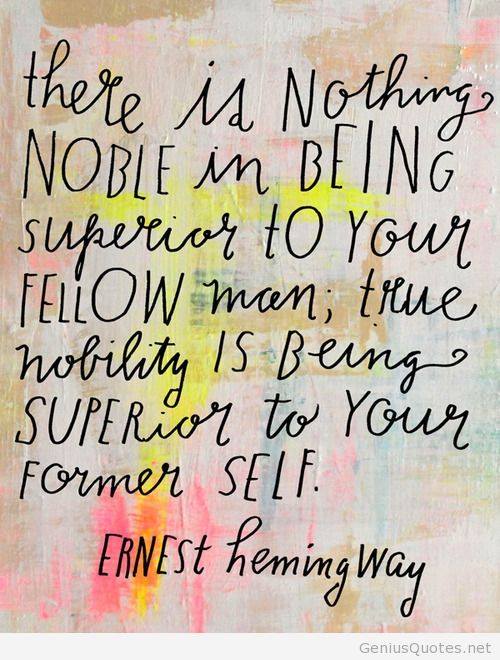 there is Nothing
NOBLE in BEING
superior tO YOur
FELLOW man; true
nobility IS Being
SUPERior to YOur
Former SELF.
ERNESt hemingWay
GeniusQuotes.net